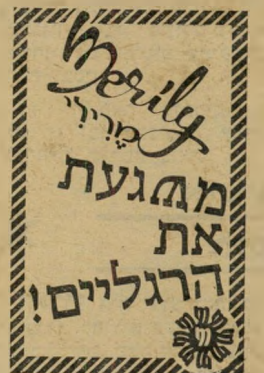 Merily
מֶרִילִי
משגעת
את
הרגליים!